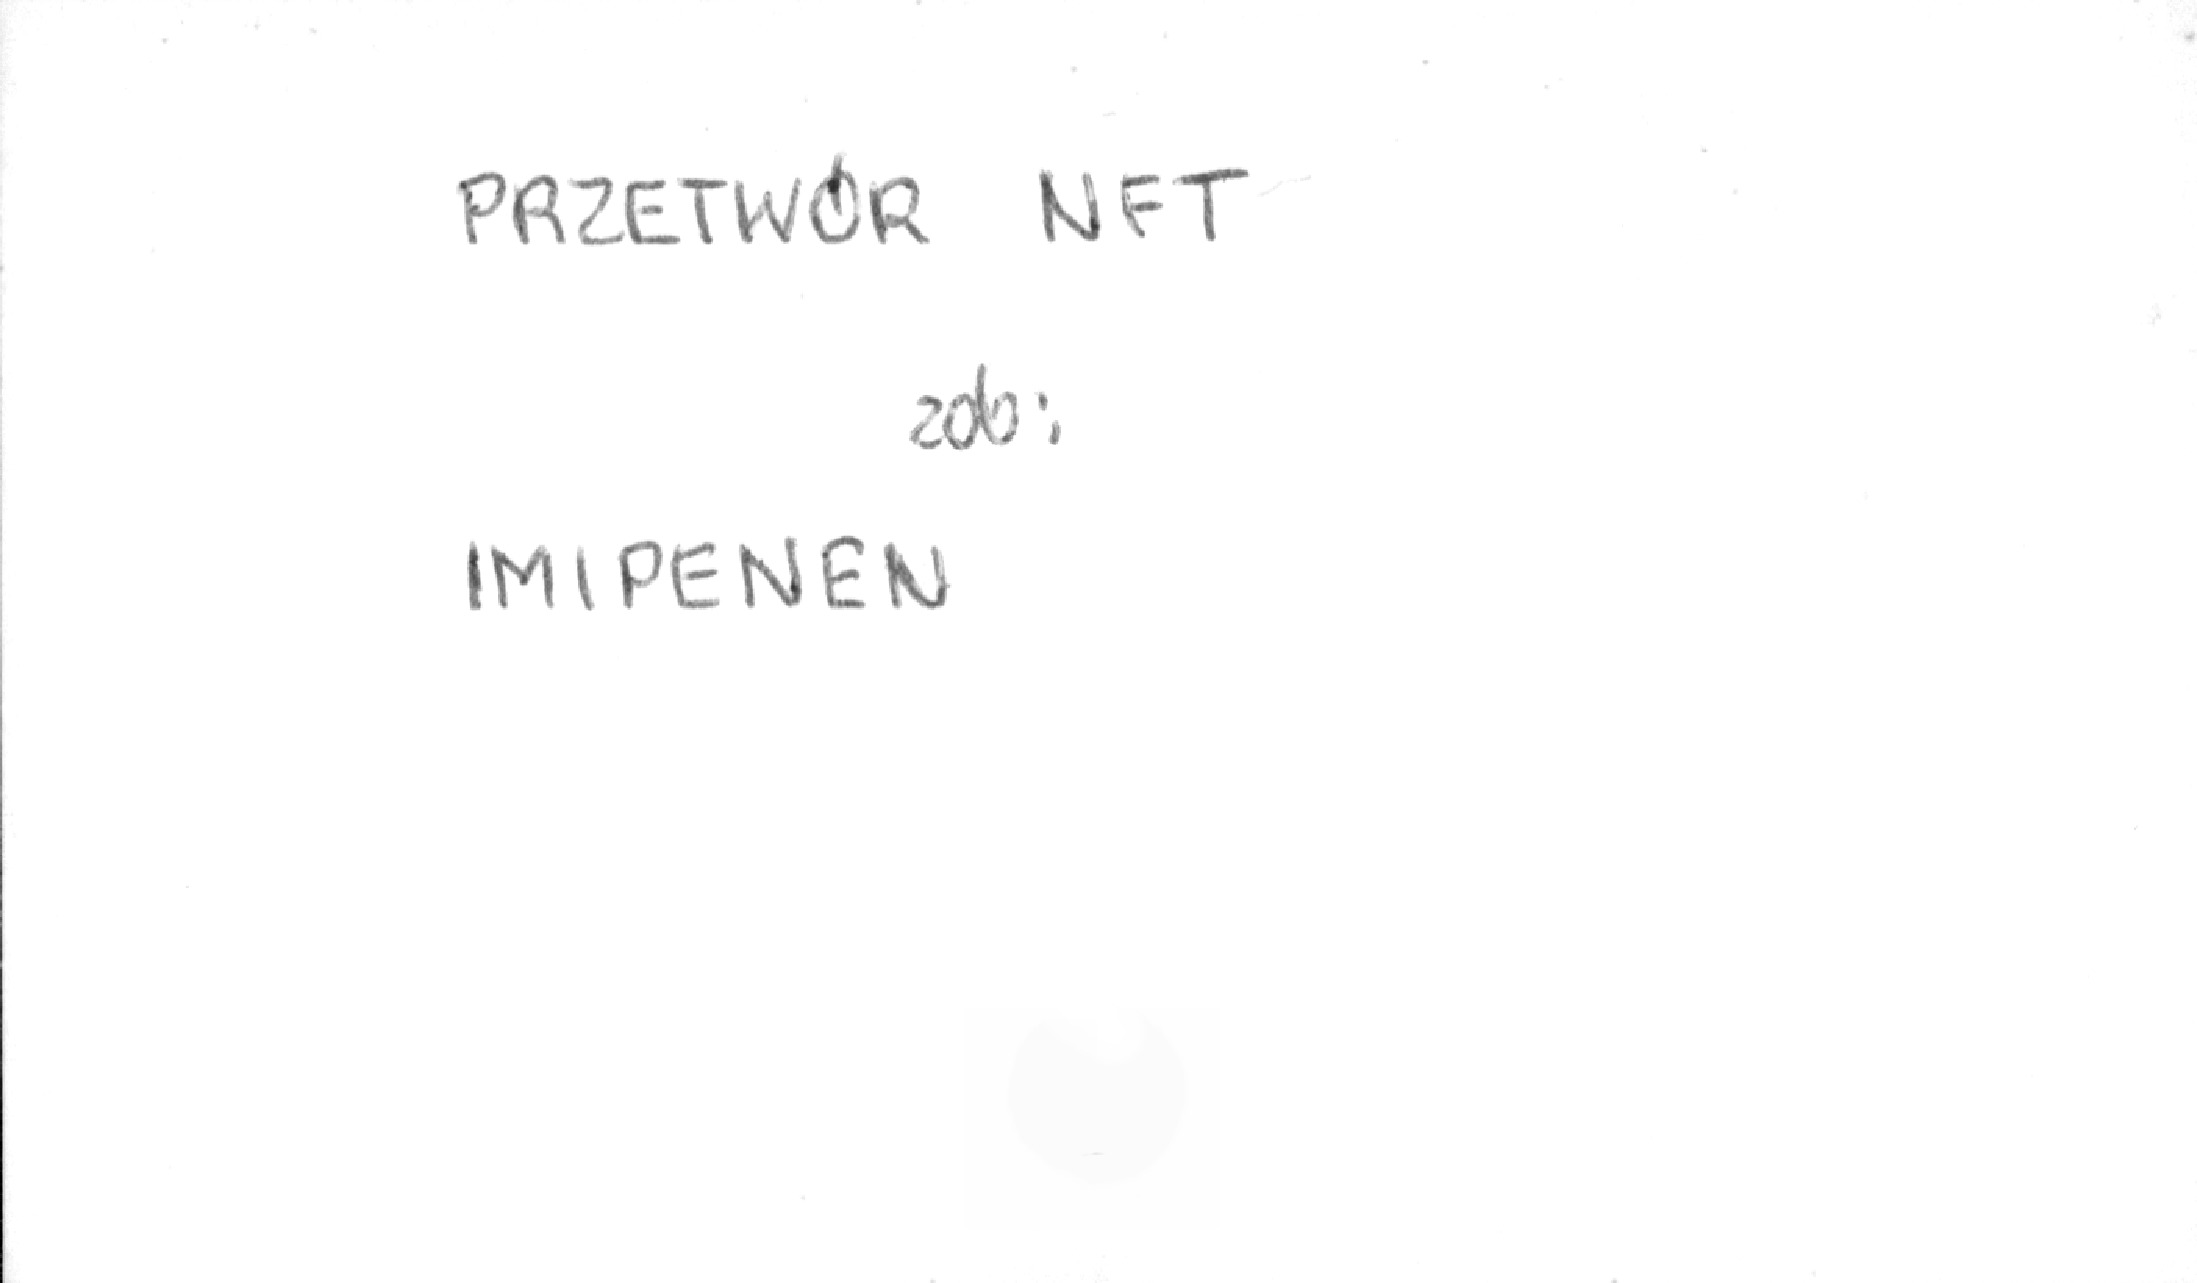 PRZETWÓR NFT
zob:
IMIPENEN